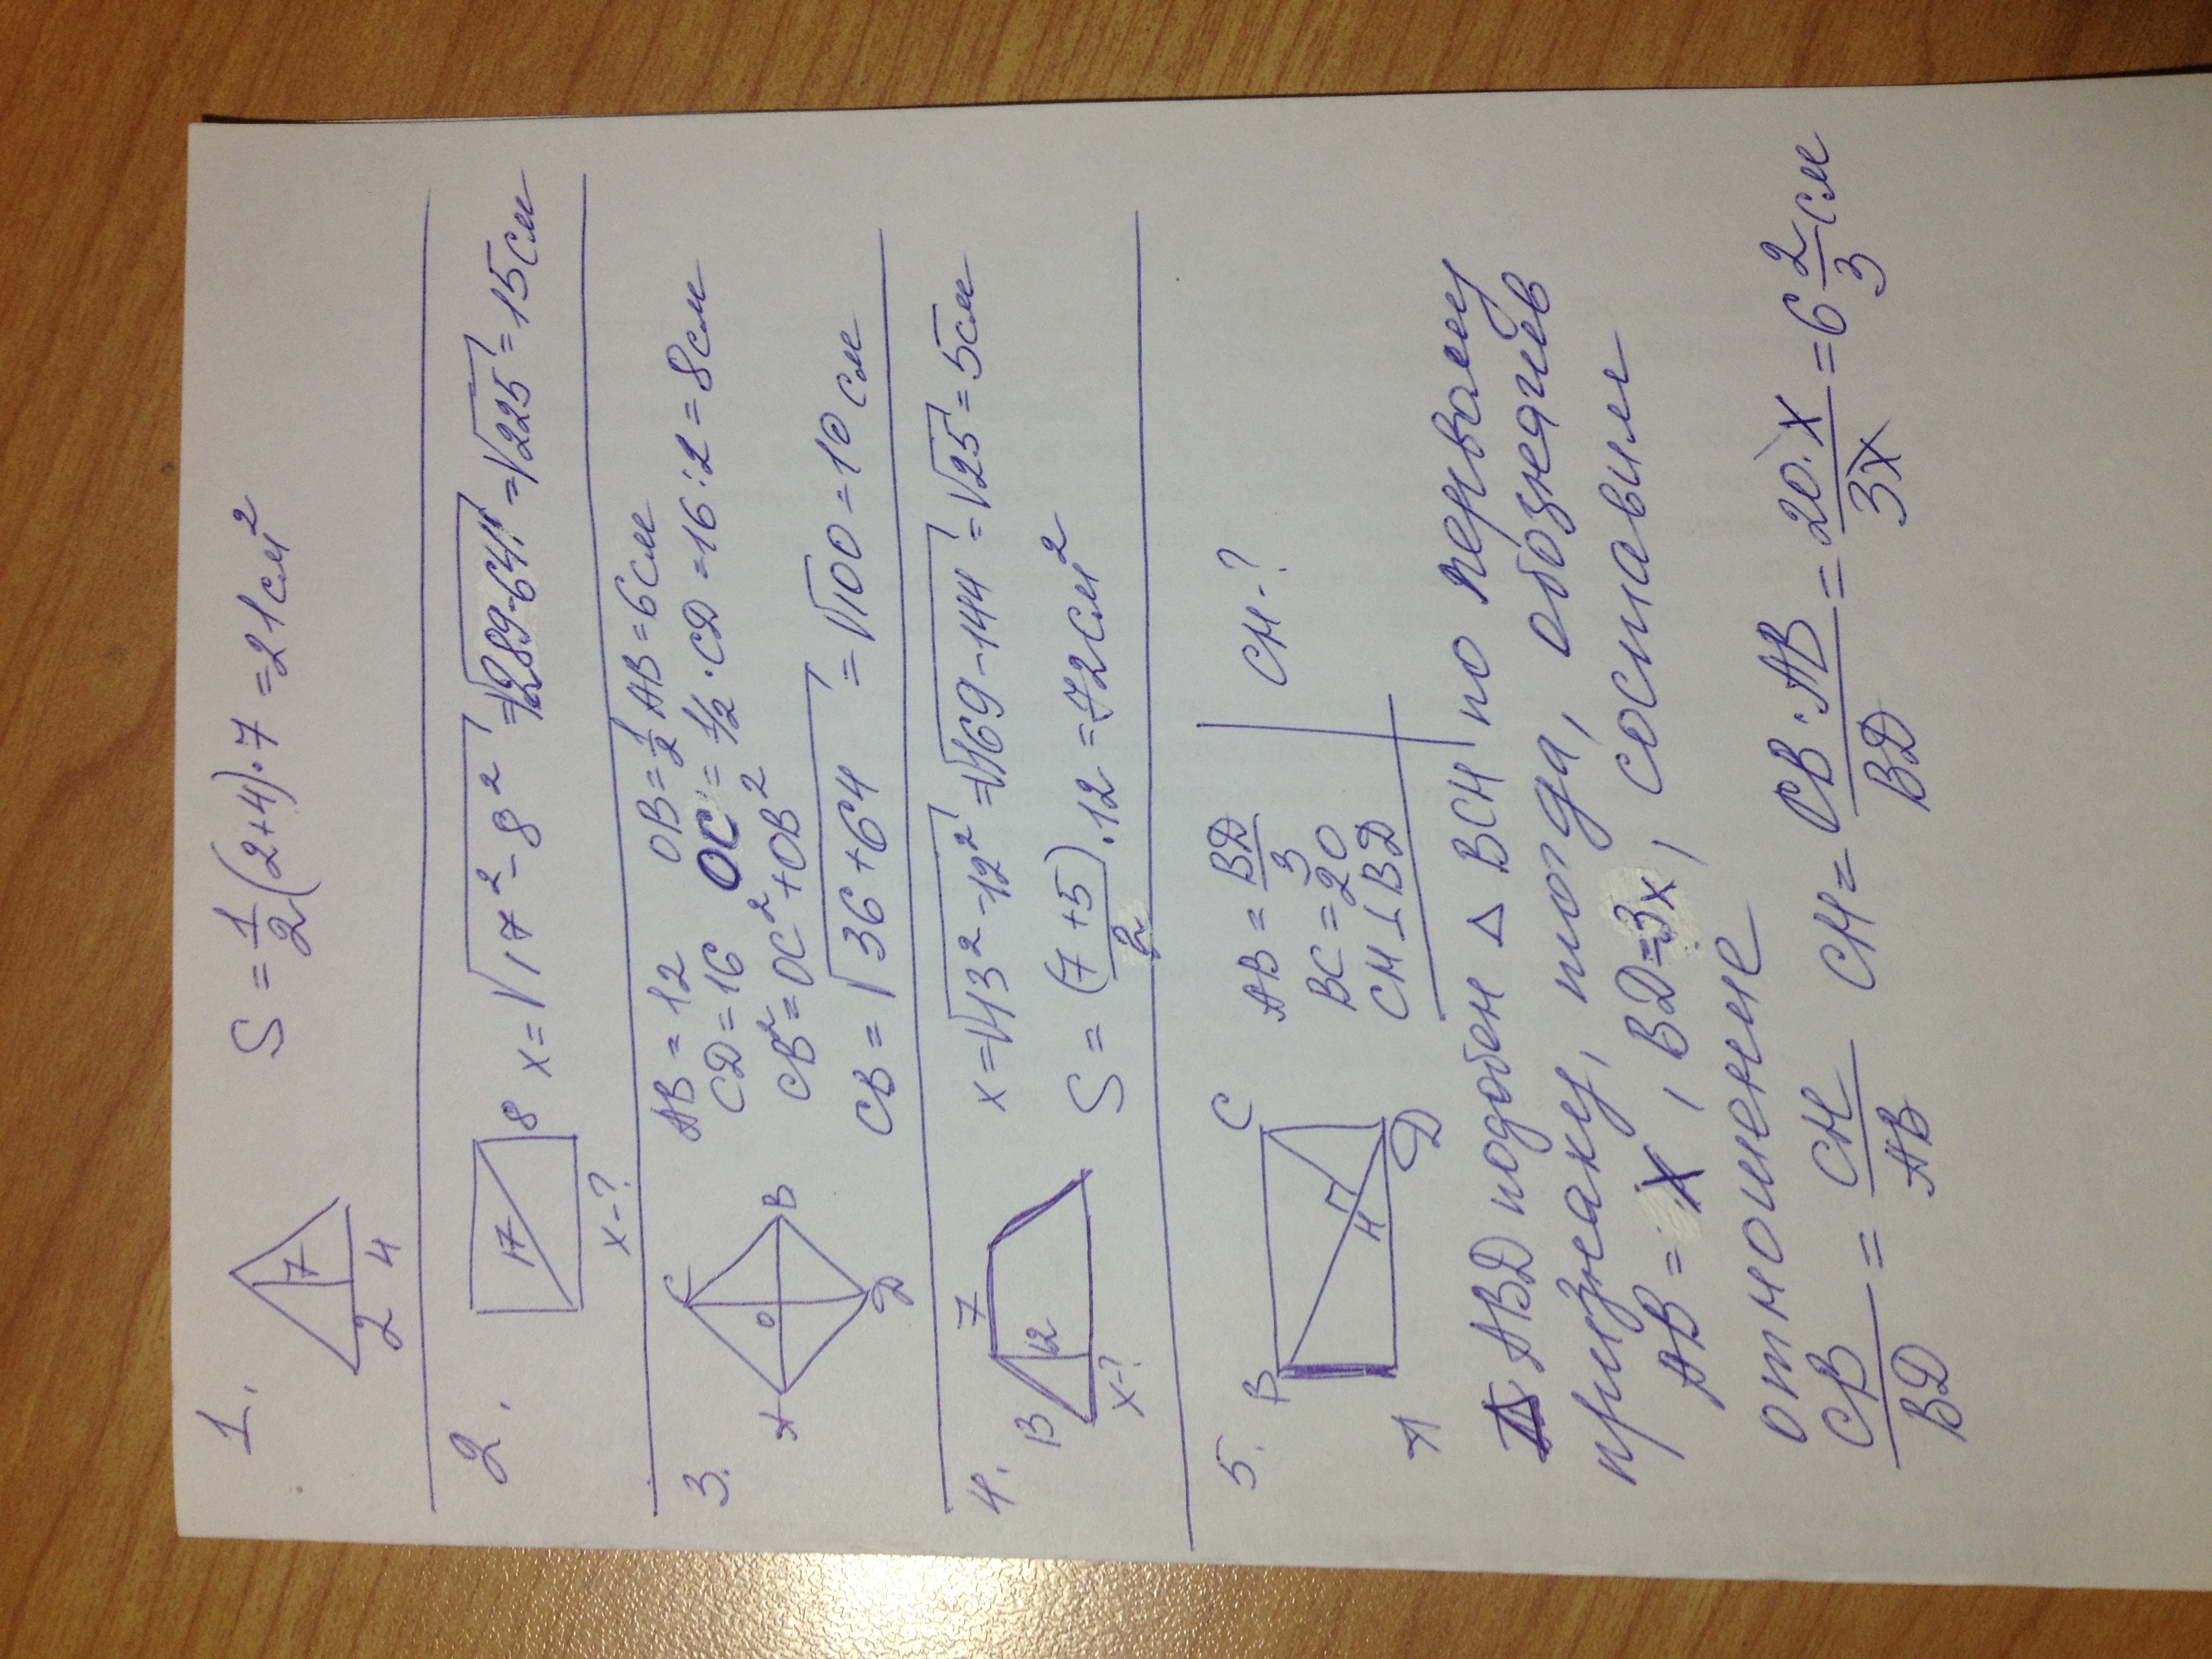 1. S = 1/2 (2+4)·7 = 21 см²
7
2 4
2. 17 8 x = √17² - 8² = √289-64 = √225 = 15 см
x-?
3. AB = 12 OB = 1/2 AB = 6 см
CD = 16 OC = 1/2 · CD = 16:2 = 8 см
C
A O B
D
CB² = OC² + OB²
CB = √36+64 = √100 = 10 см
4. B 7 x = √13² - 12² = √169-144 = √25 = 5 см
12
x-?
S = (7+5)/2 · 12 = 72 см²
5. B C AB = BD/3 CH-?
BC = 20
H
A D CH ⊥ BD
Δ ABD подобен Δ BCH по первому
признаку, тогда, обозначив
AB = x, BD = 3x, составим
отношение
CB/BD = CH/AB CH = CB·AB/BD = 20·x/3x = 6 2/3 см